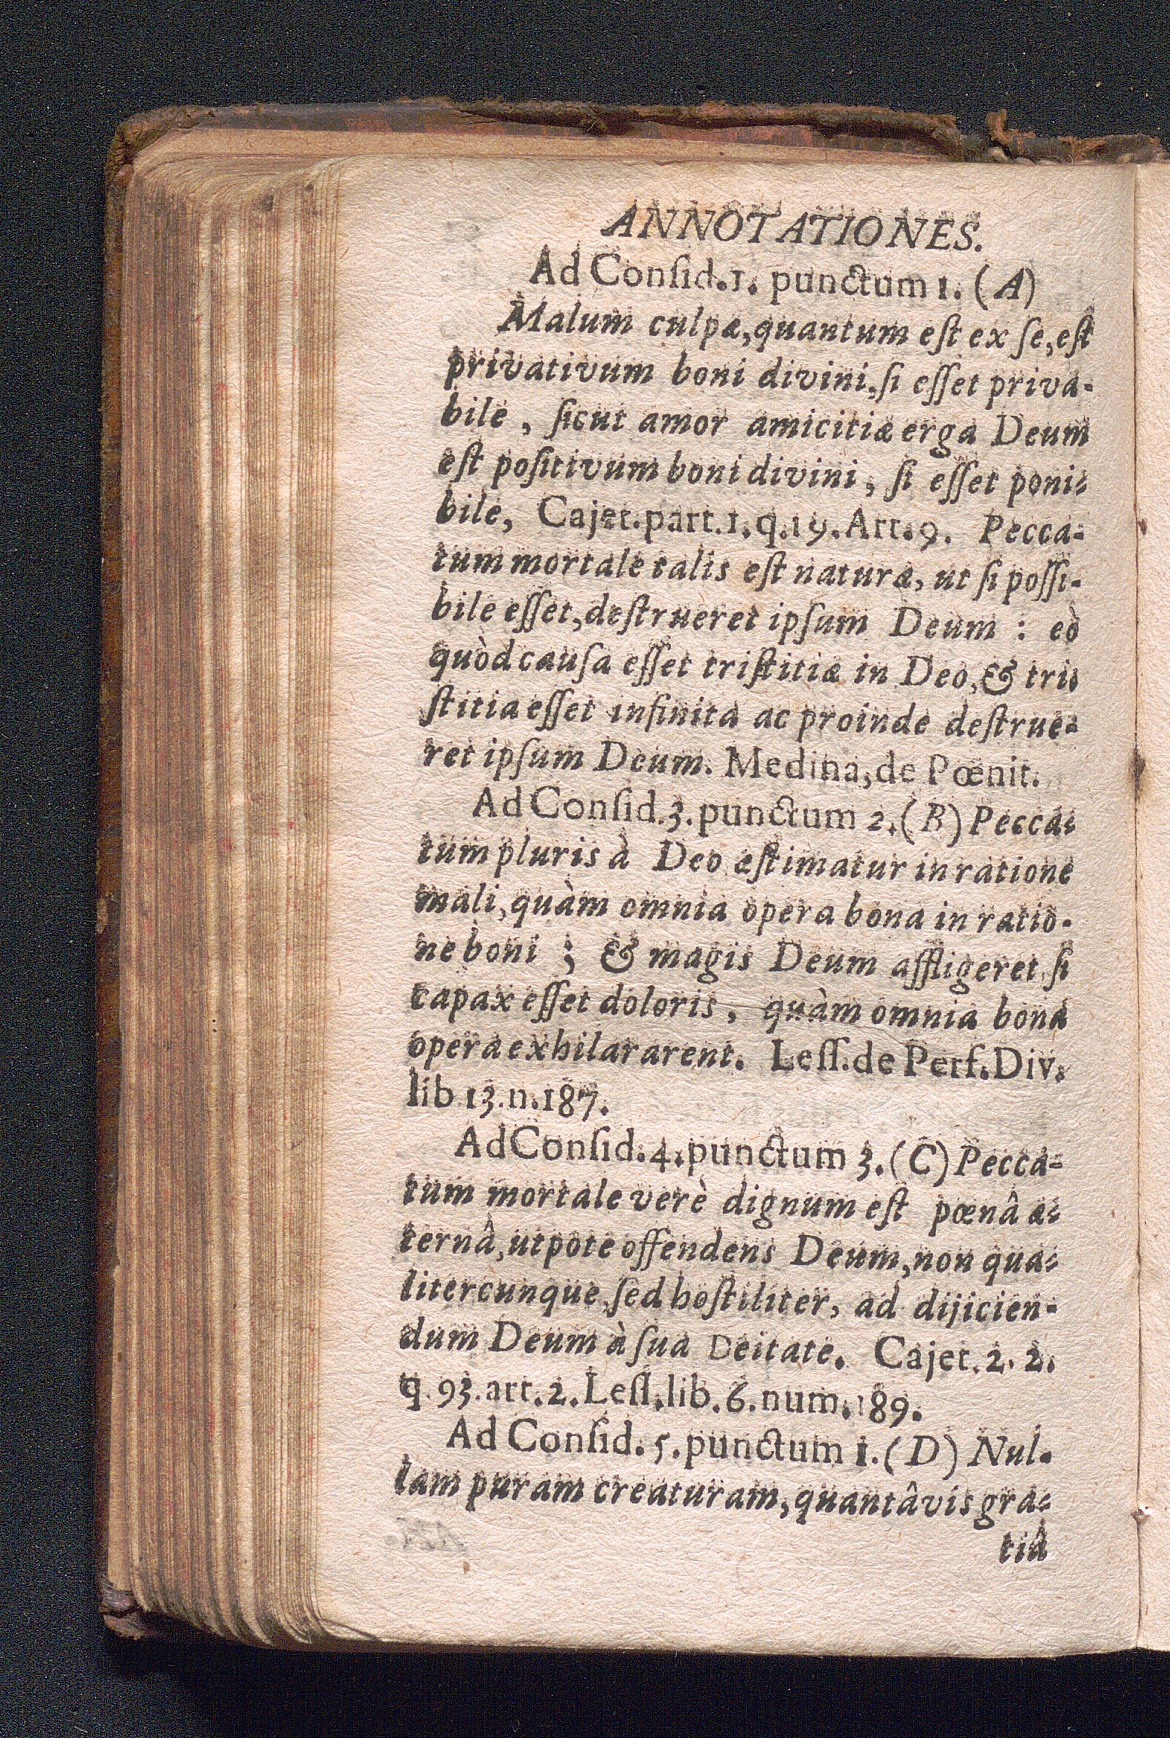 ANNOTATIONES.
Ad Conſid.1. punctum 1. (A)
Malum culpæ,quantum eſt ex ſe,eſt
privativum boni divini,ſi eſſet priva-
bile , ſicut amor amicitiæ erga Deum
eſt poſitivum boni divini, ſi eſſet poni-
bile, Cajet.part.1.q.19.Art.9. Pecca-
tum mortale talis eſt naturæ, ut ſi poſſi-
bile eſſet,deſtrueret ipſum Deum : eò
quòd cauſa eſſet triſtitiæ in Deo,& tri-
ſtitia eſſet infinita ac proinde deſtrue-
ret ipſum Deum. Medina,de Pœnit.
Ad Conſid.3.punctum 2.(B) Pecca-
tum pluris à Deo æſtimatur in ratione
mali,quàm omnia opera bona in ratio-
ne boni ; & magis Deum affligeret,ſi
capax eſſet doloris, quàm omnia bona
opera exhilararent. Leſſ.de Perf.Div.
lib 13.n.187.
Ad Conſid.4.punctum 3.(C) Pecca-
tum mortale verè dignum eſt pœnâ æ-
ternâ,utpote offendens Deum,non qua-
litercunque,ſed hoſtiliter, ad dijicien-
dum Deum à ſua Deitate. Cajet.2.2.
q.93.art.2.Leſſ.lib.6.num.189.
Ad Conſid.5.punctum 1.(D) Nul-
lam puram creaturam,quantâvis gra-
tiâ